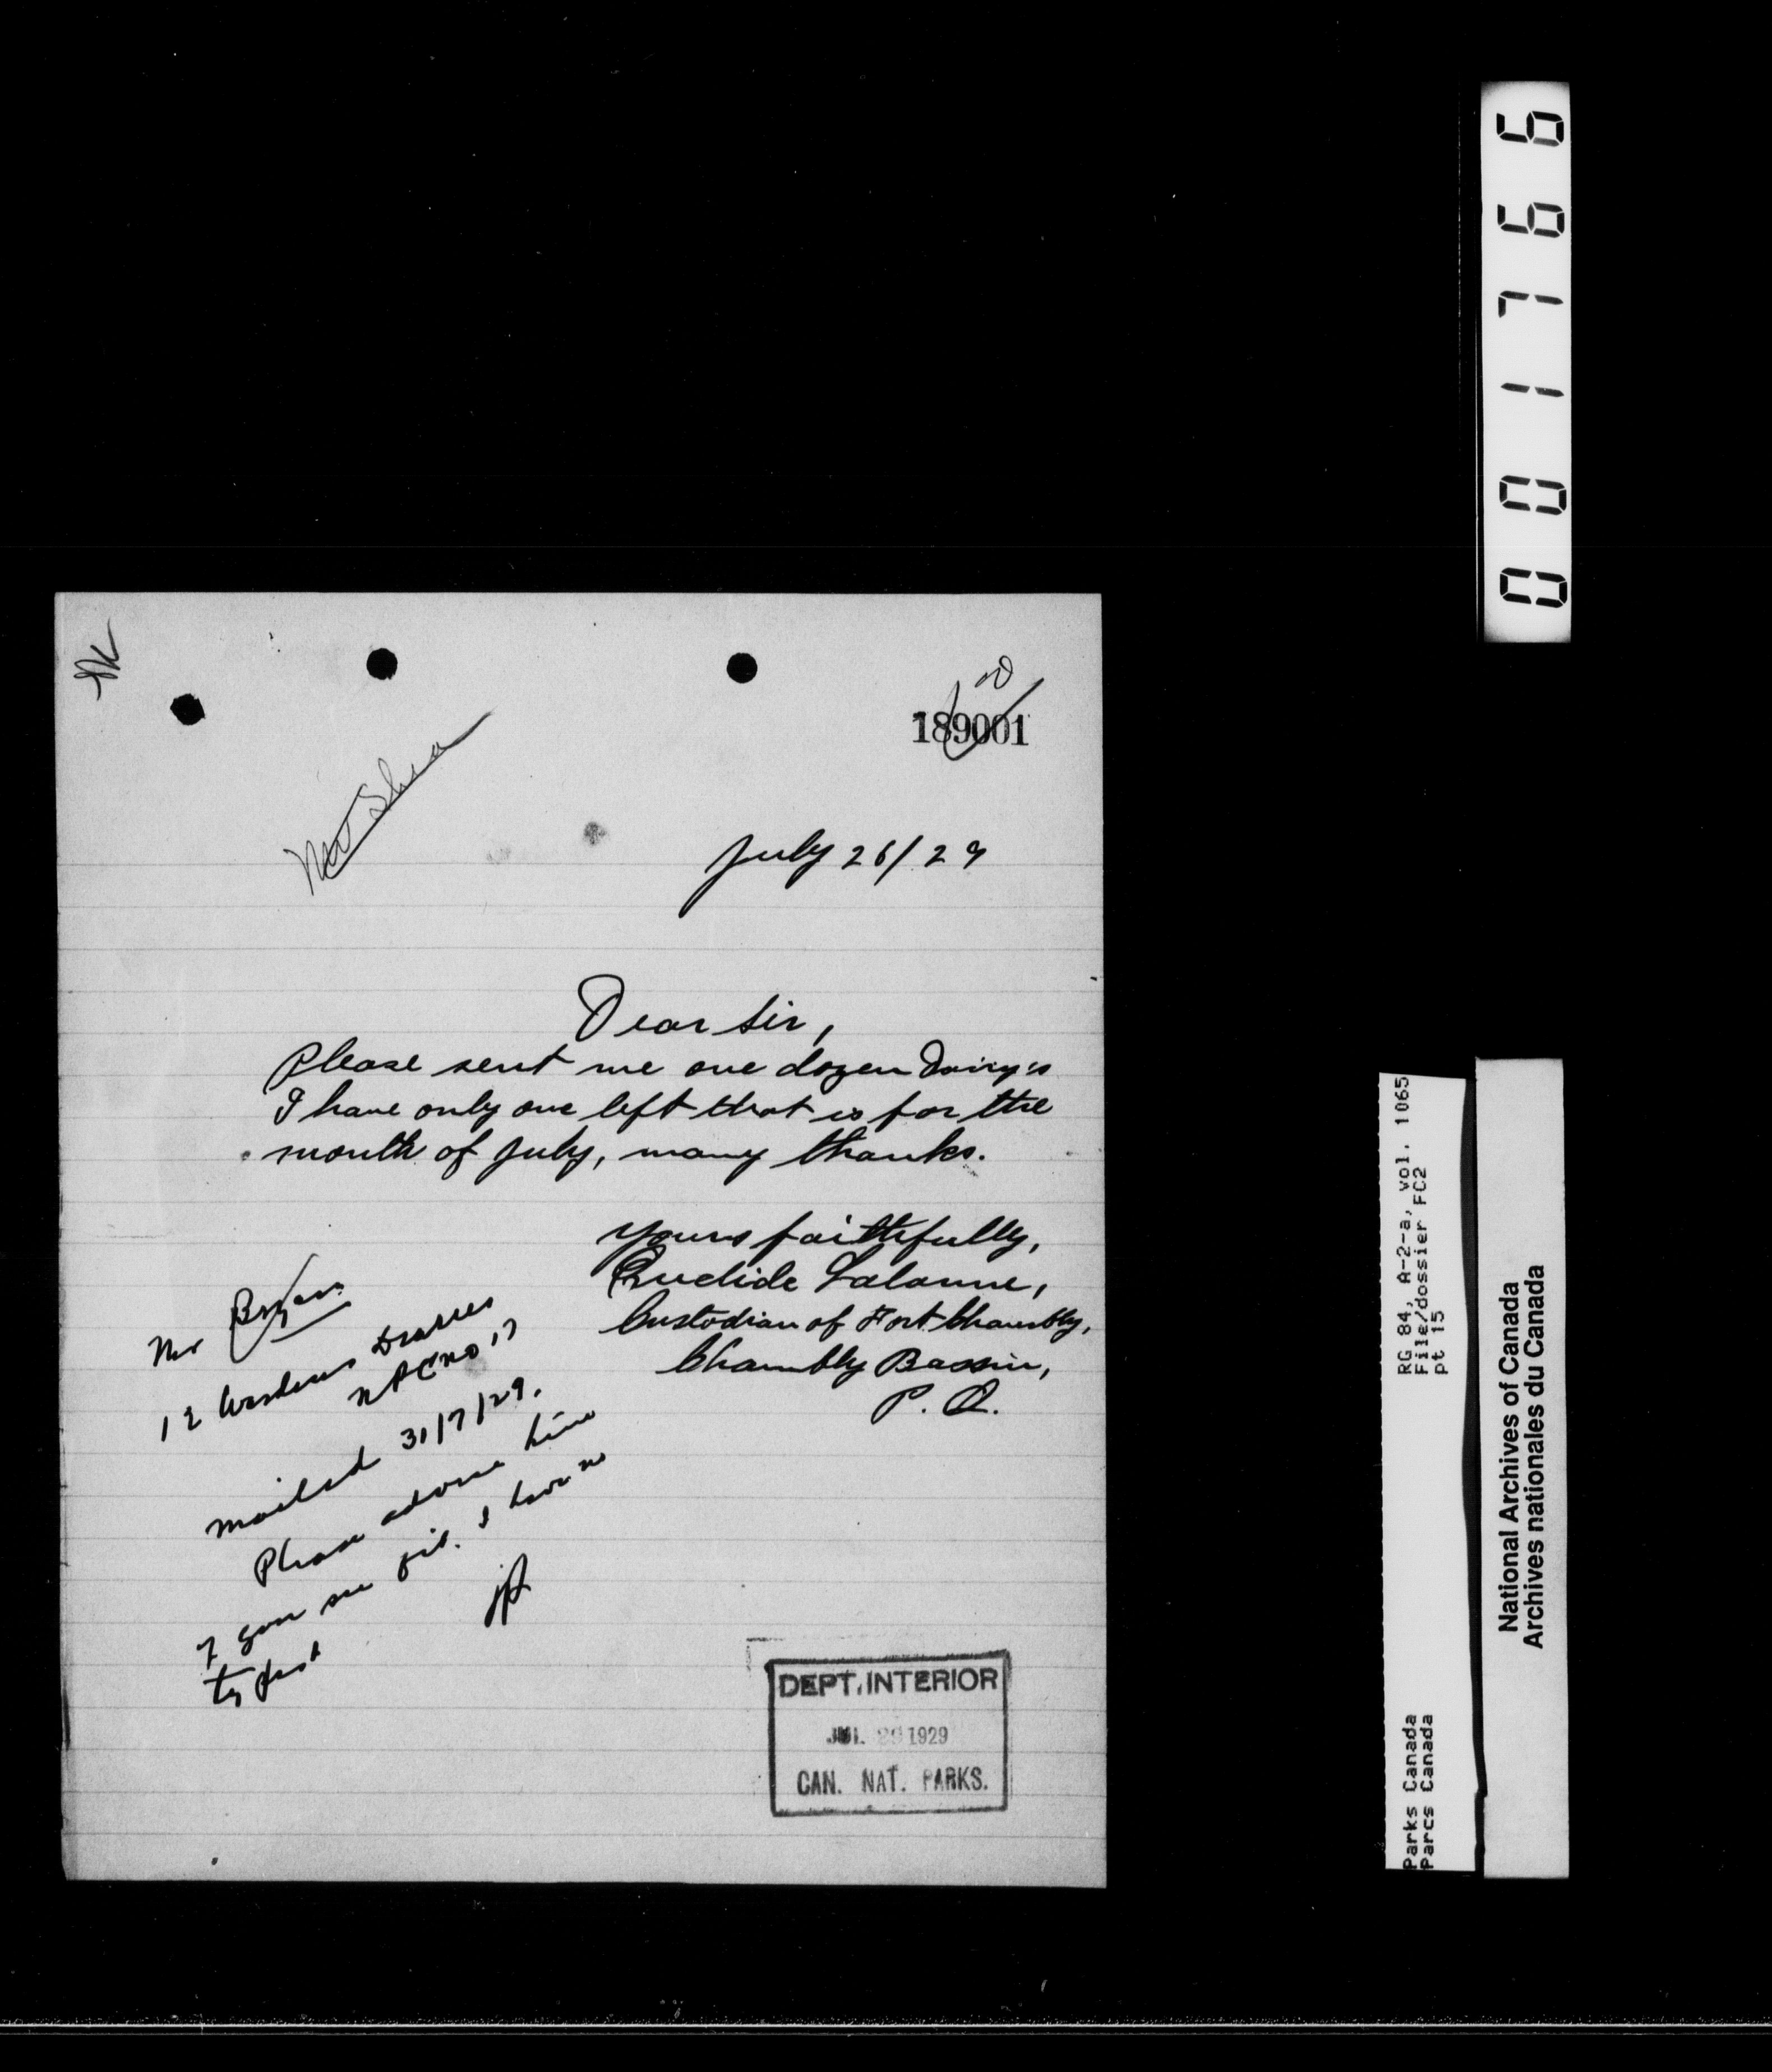 001766
189001
Mr Shea
July 26/29
Dear Sir,
Please sent me one dozen Dairy's
I have only one left that is for the
month of July, many thanks.
Yours faithfully,
Euclide Lalanne,
Custodian of Fort Chambly,
Chambly Bassin,
P. Q.
Mr
12 Wardens Diaries
mailed 31/7/29.
Please advise him
I have no
typist
DEPT. INTERIOR
JUL 29 1929
CAN. NAT. PARKS.
RG 84, A-2-a, vol. 1065
File/dossier FC2
pt 15
Parks Canada
Parcs Canada
National Archives of Canada
Archives nationales du Canada